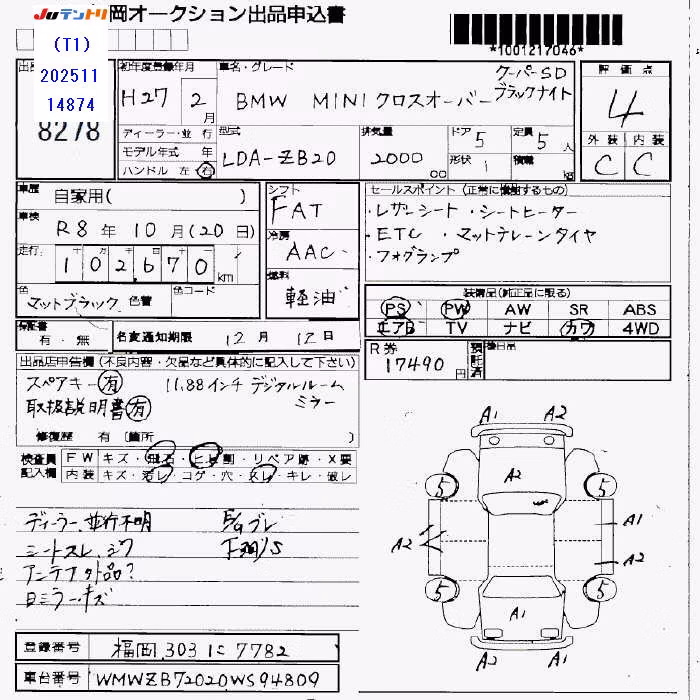 JUテントリ 福岡オークション出品申込書
(T1)
202511
14874
*1001217046*
8278
初年度登録年月
H27年 2月
車名・グレード
クーパーSD
BMW MINIクロスオーバー ブラックナイト
評価点
4
ディーラー・並行
モデル年式 年
ハンドル 左・右
型式
LDA-ZB20
排気量
2000 cc
ドア 5
形状 1
定員 5人
積載 kg
外装 内装
C C
車歴 自家用( )
車検 R8年 10月(20日)
走行 102,670km
色 マットブラック 色替
色コード
シフト
FAT
冷房
AAC
燃料
軽油
セールスポイント(正常に機能するもの)
・レザーシート・シートヒーター
・ETC ・マットテレーンタイヤ
・フォグランプ
装備品(純正品に限る)
PS PW AW SR ABS
エアB TV ナビ カワ 4WD
保証書 有・無
名変通知期限 12月 12日
R券 17490円
預託済
後日品
出品店申告欄(不良内容・欠品など具体的に記入して下さい)
スペアキー 有 11.88インチ デジタルルーム
ミラー
取扱説明書 有
修復歴 有(箇所 )
検査員記入欄
FW キズ・飛石・ヒビ割・リペア跡・X要
内装 キズ・汚レ・コゲ・穴・スレ・キレ・破レ
ディーラー、並行不明
シートスレ、シワ
アンテナ外品?
ミラーキズ
E/Gブレ
下廻りS
A1 A2
A2
5 5
A2
A1
A2
5 5
A1
A2 A1
登録番号 福岡 303 に 7782
車台番号 WMWZB72020WS94809